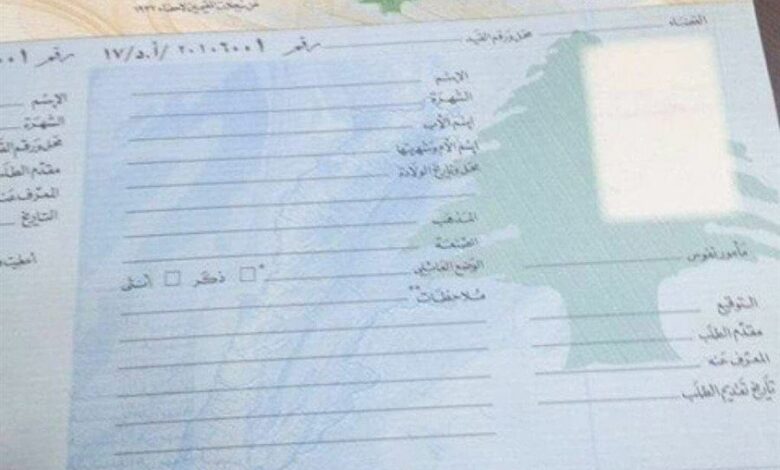 من سجلات المقيمين لاحصاء ١٩٣٢
القضاء
محل ورقم القيد
رقم ٢٠١٠٦٠٠١ /أ.د/١٧
رقم
الإسم
الشهرة
إسم الأب
إسم الأم وشهرتها
محل وتاريخ الولادة
المذهب
الصنعة
الوضع العائلي
* ذكر أنثى
ملاحظات**
مأمور نفوس
التوقيع
مقدم الطلب
المعرف عنه
تاريخ تقديم الطلب
الإسم
الشهرة
محل ورقم
مقدم الطلب
المعرف عنه
التاريخ
أعطيت